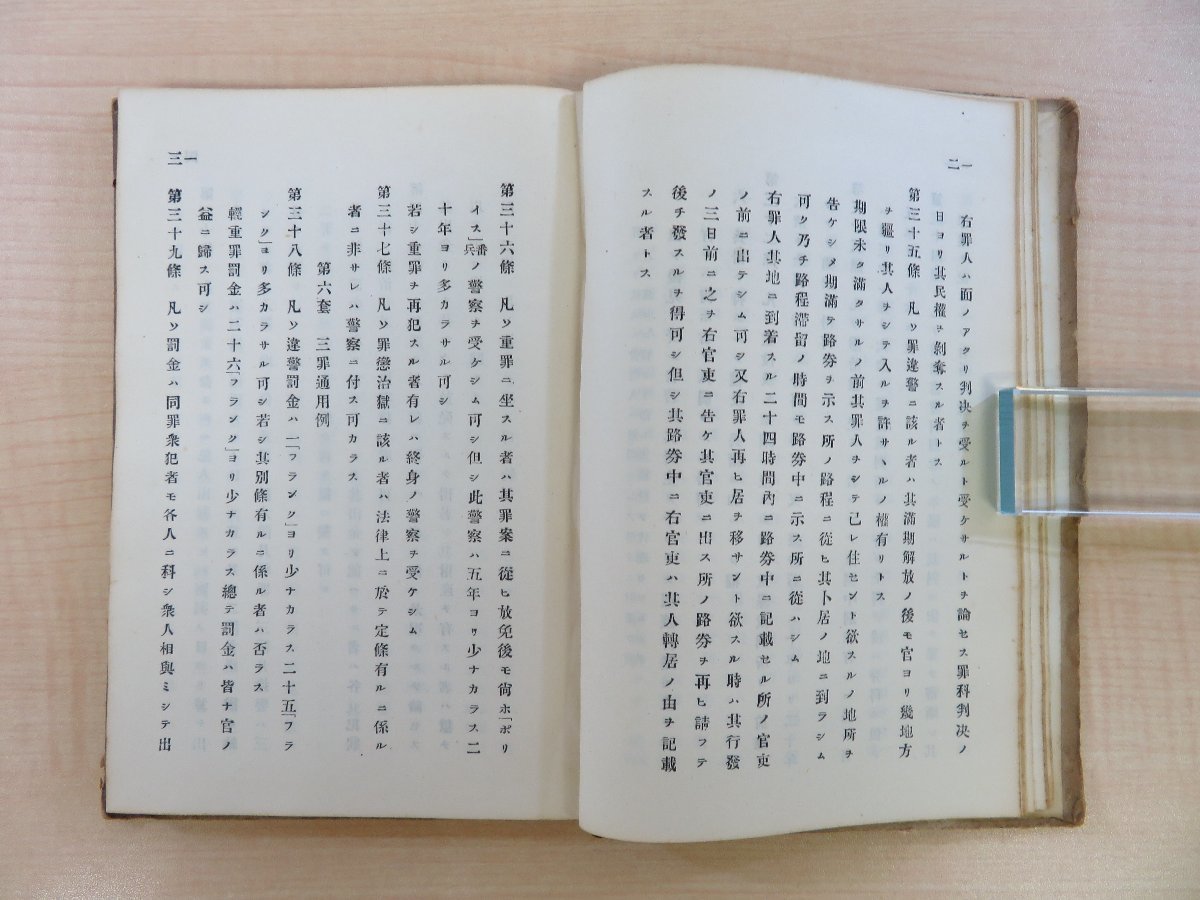 一二
右罪人ハ面ノアタリ判决ヲ受ルト受ケサルトヲ論セス罪科判决ノ
日ヨリ其民權ヲ剝奪スル者トス
第三十五條 凡ソ罪違警ニ該ル者ハ其滿期解放ノ後モ官ヨリ幾地方
ヲ疆リ其人ヲシテ入ルヲ許サヽルノ權有リトス
期限未タ滿タサルノ前其罪人ヲシテ己レ住セント欲スルノ地所ヲ
告ケシメ期滿テ路劵ヲ示ス所ノ路程ニ從ヒ其卜居ノ地ニ到ラシム
可ク乃チ路程滯留ノ時間モ路劵中ニ示ス所ニ從ハシム
右罪人其地ニ到着スル二十四時間內ニ路劵中ニ記載セル所ノ官吏
ノ前ニ出テシム可シ又右罪人再ヒ居ヲ移サント欲スル時ハ其行發
ノ三日前ニ之ヲ右官吏ニ告ケ其官吏ニ出ス所ノ路劵ヲ再ヒ請フテ
後チ發スルヲ得可シ但シ其路劵中ニ右官吏ハ其人轉居ノ由ヲ記載
スル者トス
第三十六條 凡ソ重罪ニ坐スル者ハ其罪案ニ從ヒ放免後モ尙ホ「ポリ
イス」番兵ノ警察ヲ受ケシム可シ但シ此警察ハ五年ヨリ少ナカラス二
十年ヨリ多カラサル可シ
若シ重罪ヲ再犯スル者有レハ終身ノ警察ヲ受ケシム
第三十七條 凡ソ罪懲治獄ニ該ル者ハ法律上ニ於テ定條有ルニ係ル
者ニ非サレハ警察ニ付ス可カラス
第六套 三罪通用例
第三十八條 凡ソ違警罰金ハ一「フランク」ヨリ少ナカラス二十五「フラ
ンク」ヨリ多カラサル可シ若シ其別條有ルニ係ル者ハ否ラス
輕重罪罰金ハ二十六「フランク」ヨリ少ナカラス總テ罰金ハ皆ナ官ノ
益ニ歸ス可シ
第三十九條 凡ソ罰金ハ同罪衆犯者モ各人ニ科シ衆人相與ミシテ出
一三